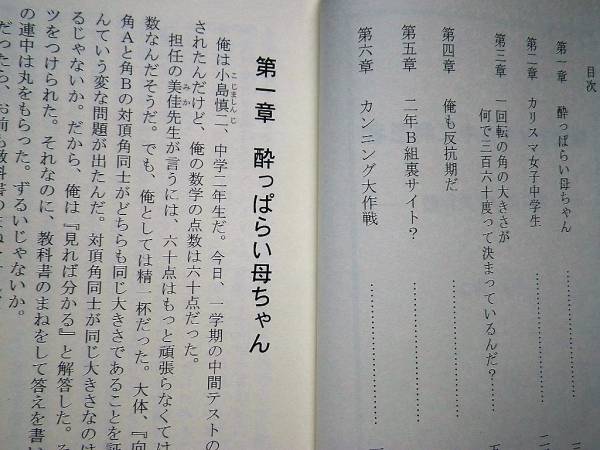 目次
第一章 酔っぱらい母ちゃん
第二章 カリスマ女子中学生
第三章 一回転の角の大きさが
何で三百六十度って決まっているんだ?
第四章 俺も反抗期だ
第五章 二年B組裏サイト?
第六章 カンニング大作戦
第一章 酔っぱらい母ちゃん
俺は小島慎二、中学二年生だ。今日、一学期の中間テストの
されたんだけど、俺の数学の点数は六十点だった。
担任の美佳先生が言うには、六十点はもっと頑張らなくては
数なんだそうだ。でも、俺としては精一杯だった。大体、『向
角Aと角Bの対頂角同士がどちらも同じ大きさであることを証
んていう変な問題が出たんだ。対頂角同士が同じ大きさなのは
るじゃないか。だから、俺は『見れば分かる』と解答した。そ
ツをつけられた。それなのに、教科書のまねをして答えを書い
の連中は丸をもらった。ずるいじゃないか。
だったら、お前も教科書のまね